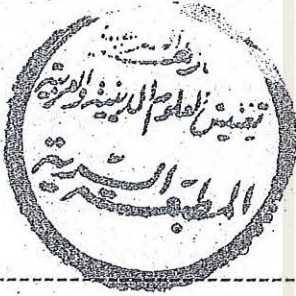 تفتيش العلوم الدينية والعربية
المطبعة السرية